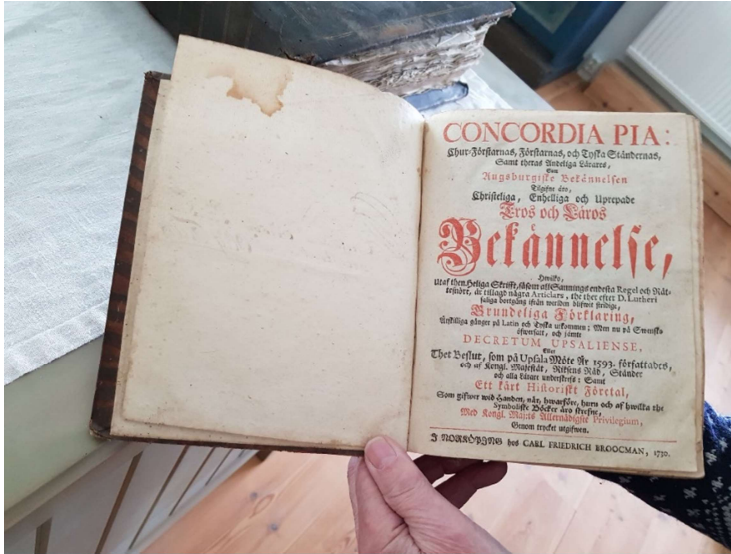 CONCORDIA PIA:
Chur-Förstarnas, Förstarnas, och Tyska Ständernas,
Samt theras Andeliga Lärares,
Som
Augsburgiske Bekännelsen
Tilgifne äro,
Christeliga, Enhelliga och Uprepade
Tros och Läros
Bekännelse,
Hwilko,
Utaf then Heliga Skrifft, såsom all Sannings endesta Regel och Rät-
tesnöre, är tillagd några Articlars, the ther efter D. Lutheri
saliga bortgång ifrån werlden blifwit stridige,
Grundeliga Förklaring,
Åtskilliga gånger på Latin och Tyska utkommen; Men nu på Swensko
öfwersatt, och jämte
DECRETUM UPSALIENSE,
Eller
Thet Beslut, som på Upsala Möte År 1593. författades,
och af Kongl. Majestät, Riksens Råd, Ständer
och alla Lärare underskrefs: Samt
Ett kårt Historiskt Företal,
Som gifwer wid handen, när, hwarföre, huru och af hwilka the
Symboliske Böcker äro skrefne,
Med Kongl. Maj:ts Allernådigste Privilegium,
Genom trycket utgifwen.
I NORKÖPING hos CARL FRIEDRICH BROOCMAN, 1730.